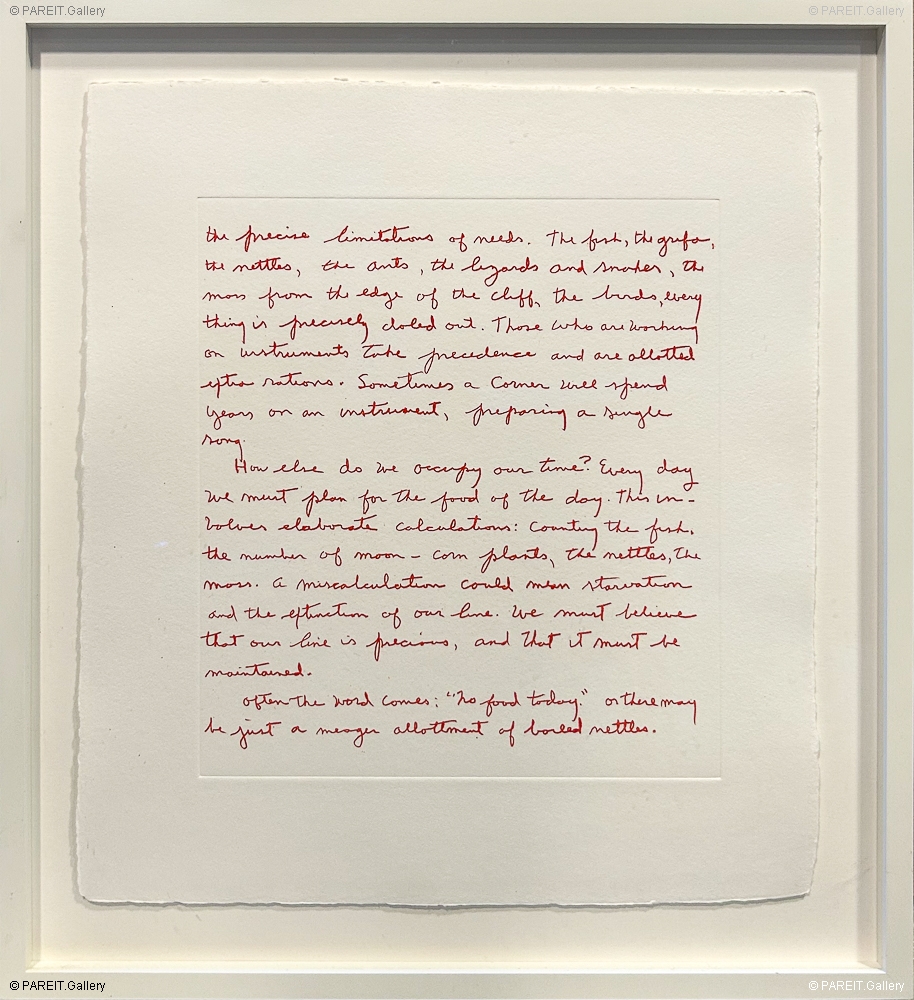 © PAREIT.Gallery
© PAREIT.Gallery
the precise limitations of needs. The fish, the grifa,
the nettles, the ants, the lizards and snakes, the
moss from the edge of the cliff, the birds, every
thing is precisely doled out. Those who are working
on instruments take precedence and are allotted
extra rations. Sometimes a Comer will spend
years on an instrument, preparing a single
song.
How else do we occupy our time? Every day
we must plan for the food of the day. This in-
volves elaborate calculations: counting the fish,
the number of moon-corn plants, the nettles, the
moss. A miscalculation could mean starvation
and the extinction of our line. We must believe
that our line is precious, and that it must be
maintained.
often the word comes: "No food today." or there may
be just a meager allottment of boiled nettles.
© PAREIT.Gallery
© PAREIT.Gallery